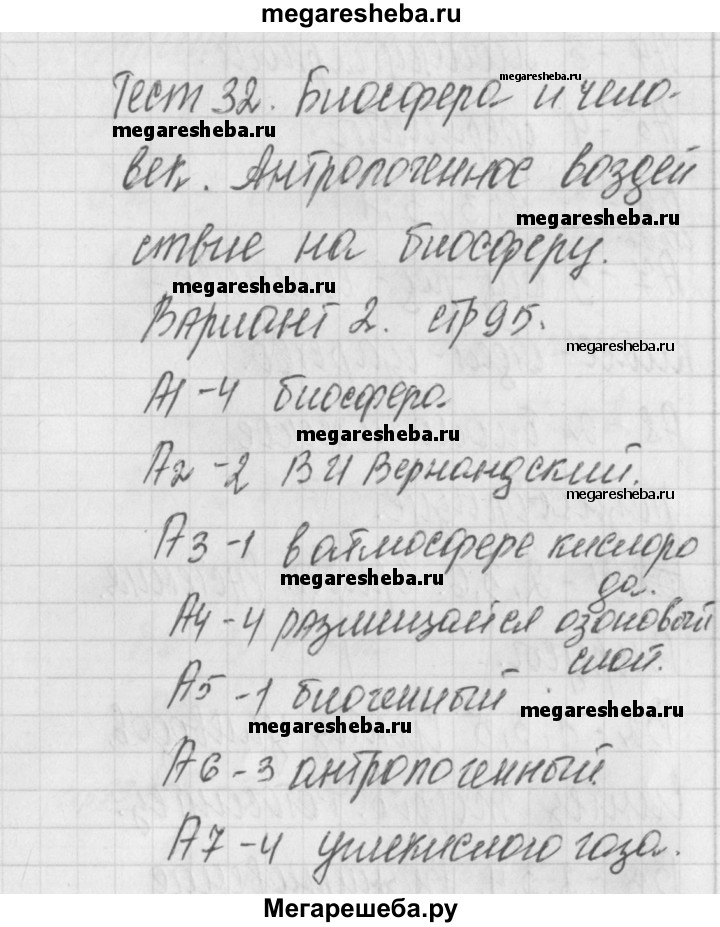 megaresheba.ru
Тест 32. Биосфера и чело-
megaresheba.ru
megaresheba.ru
век. Антропогенное воздей
megaresheba.ru
ствие на биосферу.
megaresheba.ru
Вариант 2. стр 95.
megaresheba.ru
А1 - 4 биосфера
megaresheba.ru
А2 - 2 В И Вернандский.
megaresheba.ru
А3 - 1 в атмосфере кислоро
да.
megaresheba.ru
А4 - 4 размищается озоновый
слой.
А5 - 1 биогенный.
megaresheba.ru
megaresheba.ru
А6 - 3 антропогенный.
А7 - 4 углекислого газа.
Мегарешеба.ру